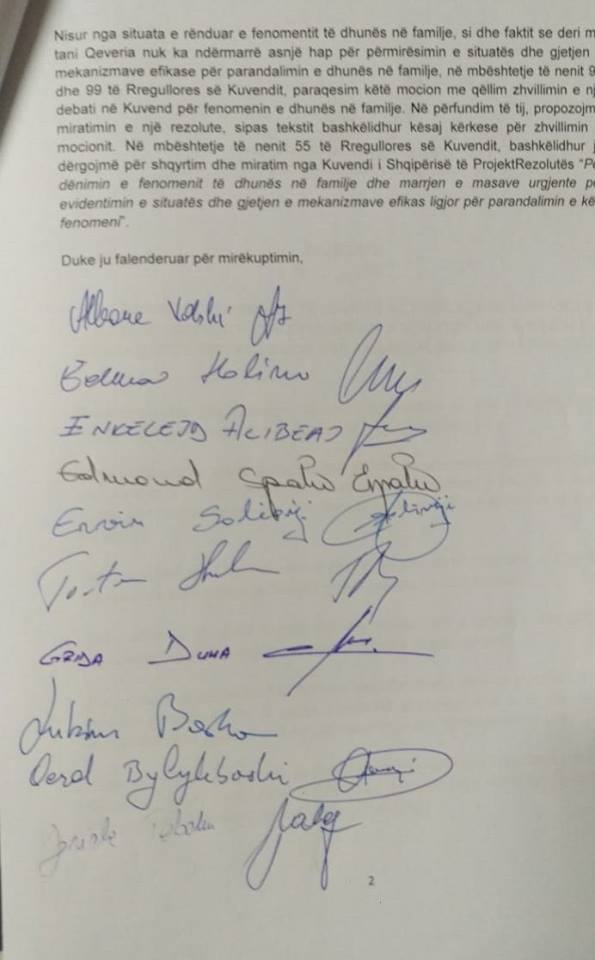 Nisur nga situata e rënduar e fenomentit të dhunës në familje, si dhe faktit se deri m
tani Qeveria nuk ka ndërmarrë asnjë hap për përmirësimin e situatës dhe gjetjen
mekanizmave efikase për parandalimin e dhunës në familje, në mbështetje të nenit 9
dhe 99 të Rregullores së Kuvendit, paraqesim këtë mocion me qëllim zhvillimin e nj
debati në Kuvend për fenomenin e dhunës në familje. Në përfundim të tij, propozojm
miratimin e një rezolute, sipas tekstit bashkëlidhur kësaj kërkese për zhvillimin
mocionit. Në mbështetje të nenit 55 të Rregullores së Kuvendit, bashkëlidhur
dërgojmë për shqyrtim dhe miratim nga Kuvendi i Shqipërisë të ProjektRezolutës "P
dënimin e fenomenit të dhunës në familje dhe marrjen e masave urgjente p
evidentimin e situatës dhe gjetjen e mekanizmave efikas ligjor për parandalimin e kë
fenomeni".
Duke ju falenderuar për mirëkuptimin,
Albana Vokshi
Halimo
ENKELEJD ALIBEAJ
Edmond Spaho ESpaho
Ervin Salianji
GRIDA DUMA
Luhim Basha
Oerd Bylykbashi
2